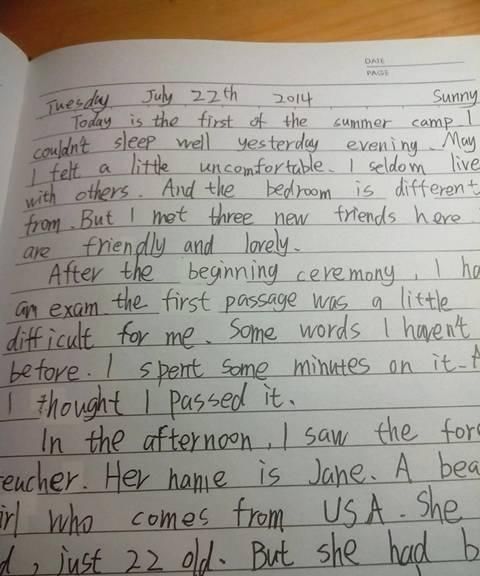 DATE
PAGE
Tuesday July 22th 2014 Sunny
Today is the first of the summer camp. I
couldn't sleep well yesterday evening. May
I felt a little uncomfortable. I seldom live
with others. And the bedroom is different
from. But I met three new friends here.
are friendly and lovely.
After the beginning ceremony, I ha
an exam the first passage was a little
difficult for me. Some words I haven't
before. I spent some minutes on it.
I thought I passed it.
In the afternoon, I saw the for
eacher. Her name is Jane. A bea
irl who comes from USA. She
d, just 22 old. But she had b